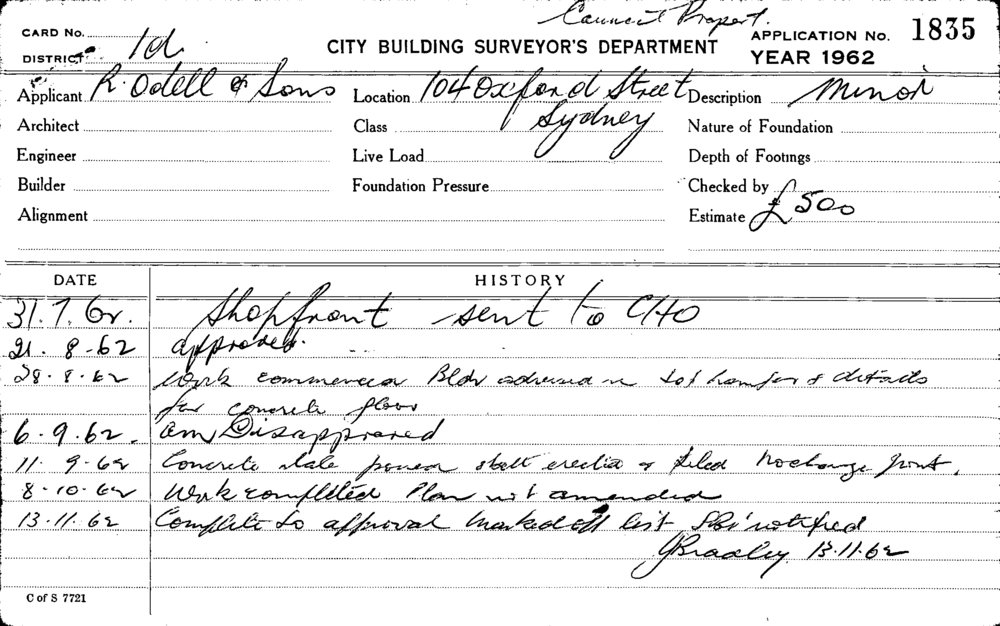 Council Propert.
CARD No.
DISTRICT 1d
CITY BUILDING SURVEYOR'S DEPARTMENT
APPLICATION No. 1835
YEAR 1962
Applicant R. Odell & Sons
Location 104 Oxford Street
Sydney
Description Minor
Architect
Class
Nature of Foundation
Engineer
Live Load
Depth of Footings
Builder
Foundation Pressure
Checked by
Alignment
Estimate £500
DATE HISTORY
31.7.62. Shopfront sent to CHO
21.8-62 approved.
28.8.62 Work commenced Bldr advised
for concrete floor
6.9.62. am Disapproved
11.9.62 Concrete poured erected & tiled
8-10-62 Work completed Plan not amended
13.11.62 Complete to approval marked off list notified
JBradley 13.11.62
C of S 7721